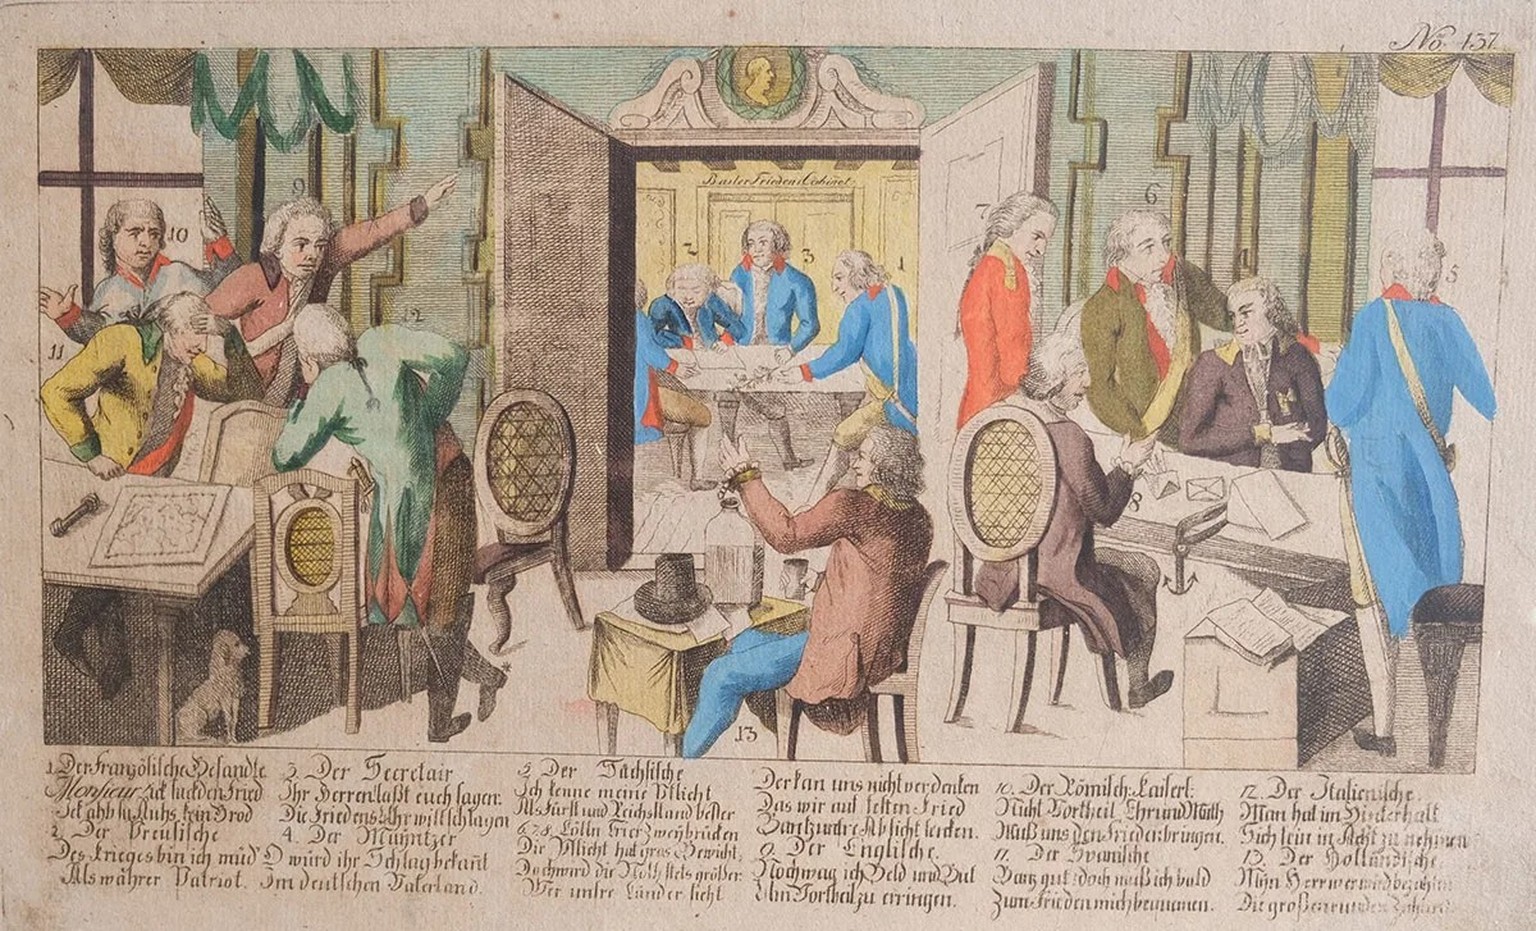 No. 137
Basler Friedens Cabinet
9
10
11
12
2
3
1
7
6
4
5
8
13
1. Der Französische Gesandte
Monsieur
2. Der Preusische
Des Krieges bin ich müd
Als währer Patriot.
3. Der Secretair
Ihr Herren laßt euch sagen:
Die Friedens Uhr will schlagen
4. Der Mayntzer
O würd ihr Schlag bekañt
Im deutschen Vaterland.
5. Der Sächsische
Ich kenne meine Pflicht
Als Fürst und Reichsstand besser
6. 7. 8. Cölln Trier Zweybrücken
Die Pflicht hat gros Gewicht,
Doch ward die Noth stets größer
Wer unsre Länder sieht
Der kan uns nicht verdenken
Das wir auf festen Fried
Absicht lenken.
9. Der Englische.
Noch wag ich Geld und Blut
Um Vortheil zu erringen.
10. Der Römisch: Kaiserl:
Nicht Vortheil, Ehr und Muth
Muß uns den Frieden bringen.
11. Der Spanische
Ganz gut: doch muß ich bald
Zum Frieden mich bequemen.
12. Der Italienische.
Man hat im Hinterhalt
Sich fein in Acht zu nehmen
13. Der Holländische.
Mijn Herr wer wird bezahlen
Die großen runden